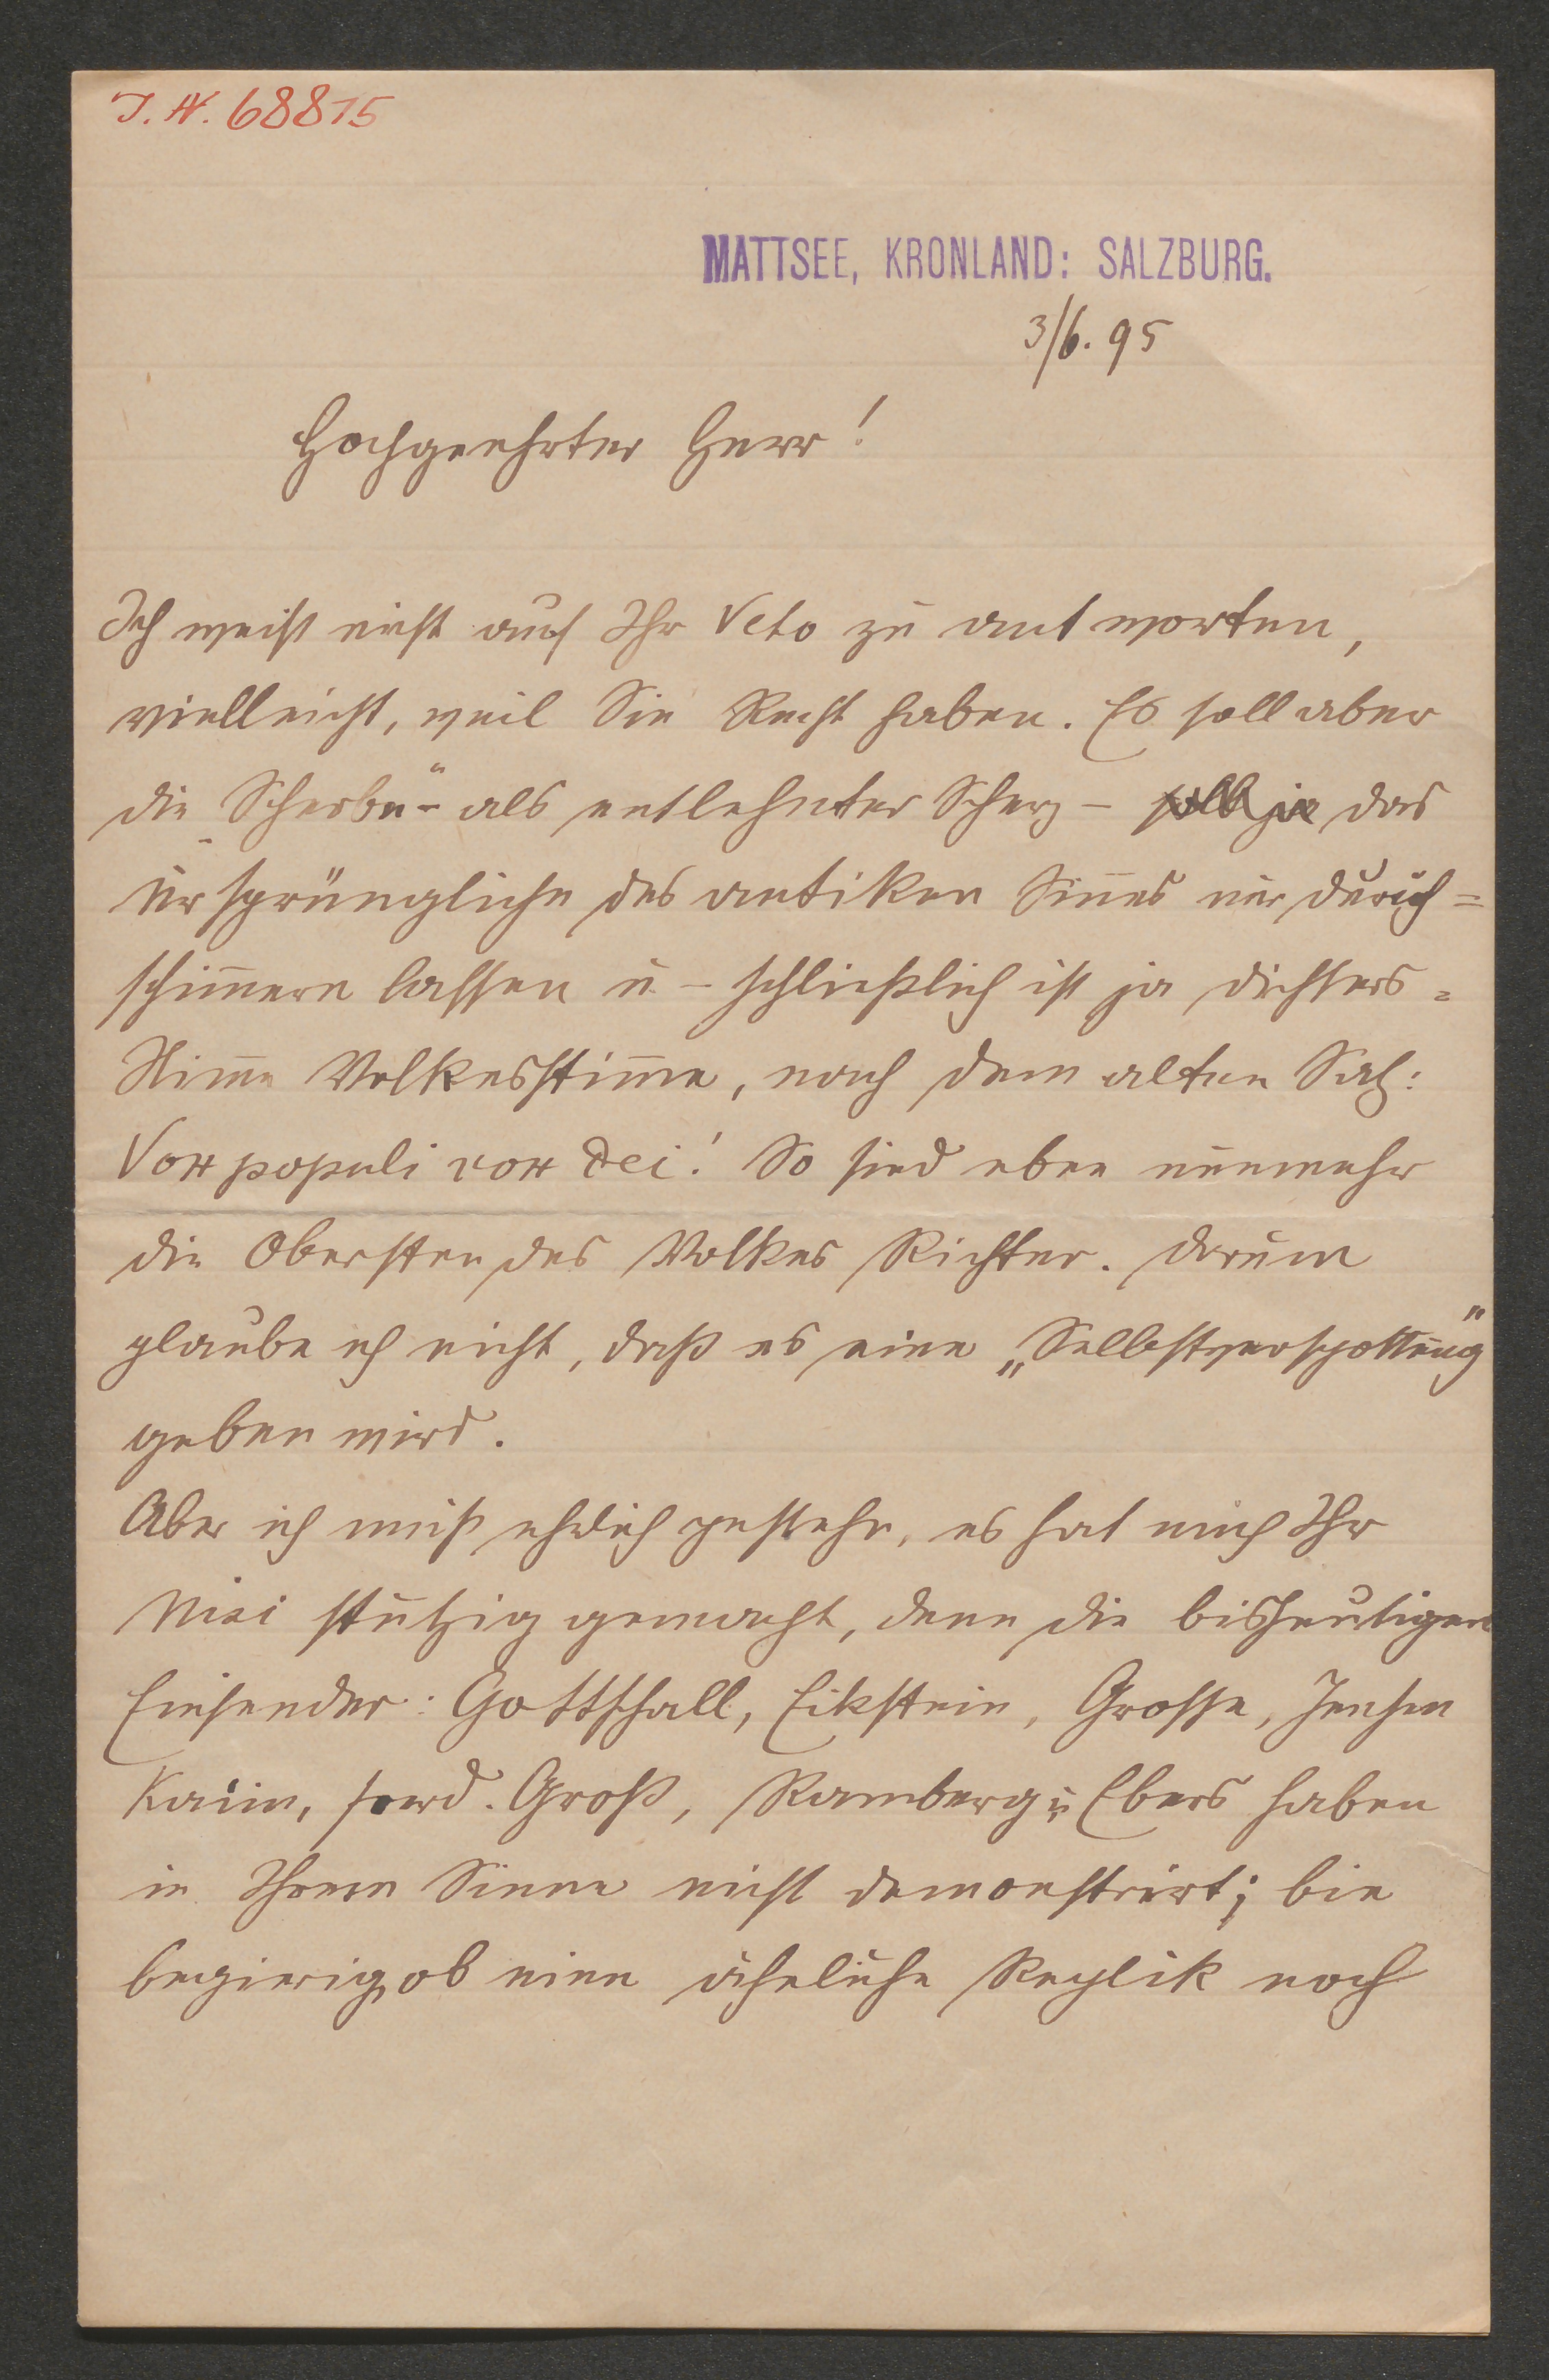 I. N. 68815
MATTSEE, KRONLAND: SALZBURG.
3/6. 95
Hochgeehrter Herr!
Ich weiß nicht auf Ihr Veto zu antworten,
vielleicht, weil Sie Recht haben. Es soll aber
die „Scherbe“ – als entlehnter Scherz – soll ja das
ursprüngliche des antiken Sin̅es nur durch=
schim̅ern lassen u – schließlich ist ja Dichters=
Stim̅e Volkesstim̅e, nach dem alten Satz:
Vox populi vox dei! So sind eben nunmehr
die Obersten des Volkes Richter. Darum
glaube ich nicht, daß es eine „Selbstverspottung“
geben wird.
Aber ich muß ehrlich gestehn, es hat mich Ihr
Nisi stutzig gemacht, denn die bisheutigen
Einsender: Gottschall, Eckstein, Grosse, Jensen
Kaim, Ferd. Groß, Ramberg u Ebers haben
in Ihrem Sinne nicht demonstrirt; bin
begierig, ob eine ähnliche Replik noch